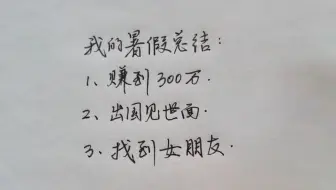 我的暑假总结：
1、赚到300万.
2、出国见世面.
3、找到女朋友.